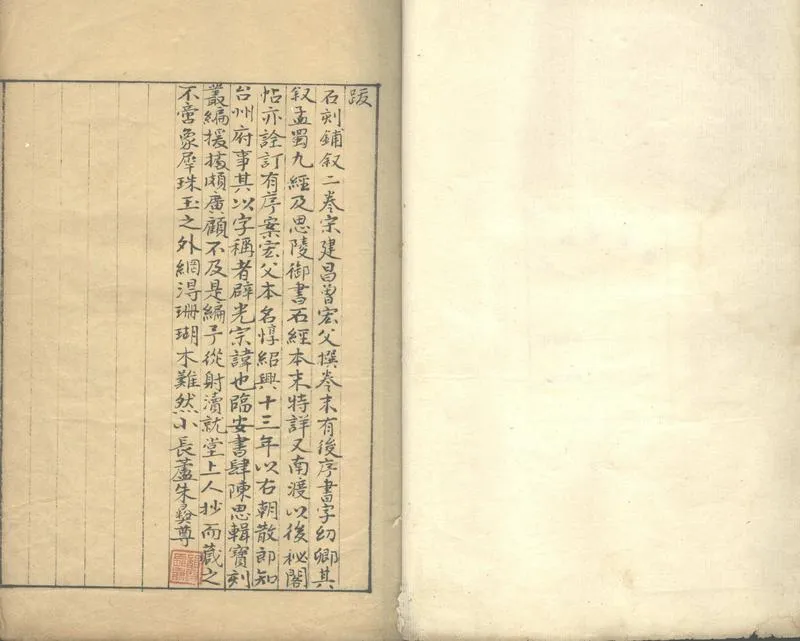 跋
石刻鋪叙二卷宋建昌曾宏父撰卷末有後序書字幼卿其
叙孟蜀九經及思陵御書石經本末特詳又南渡以後秘閣
帖亦詮訂有序案宏父本名惇紹興十三年以右朝散郎知
台州府事其以字稱者辟光宗諱也臨安書肆陳思輯寶刻
叢編援據頗廣顧不及是編予從射瀆就堂上人抄而藏之
不啻象犀珠玉之外網淂珊瑚木難然小長蘆朱彝尊